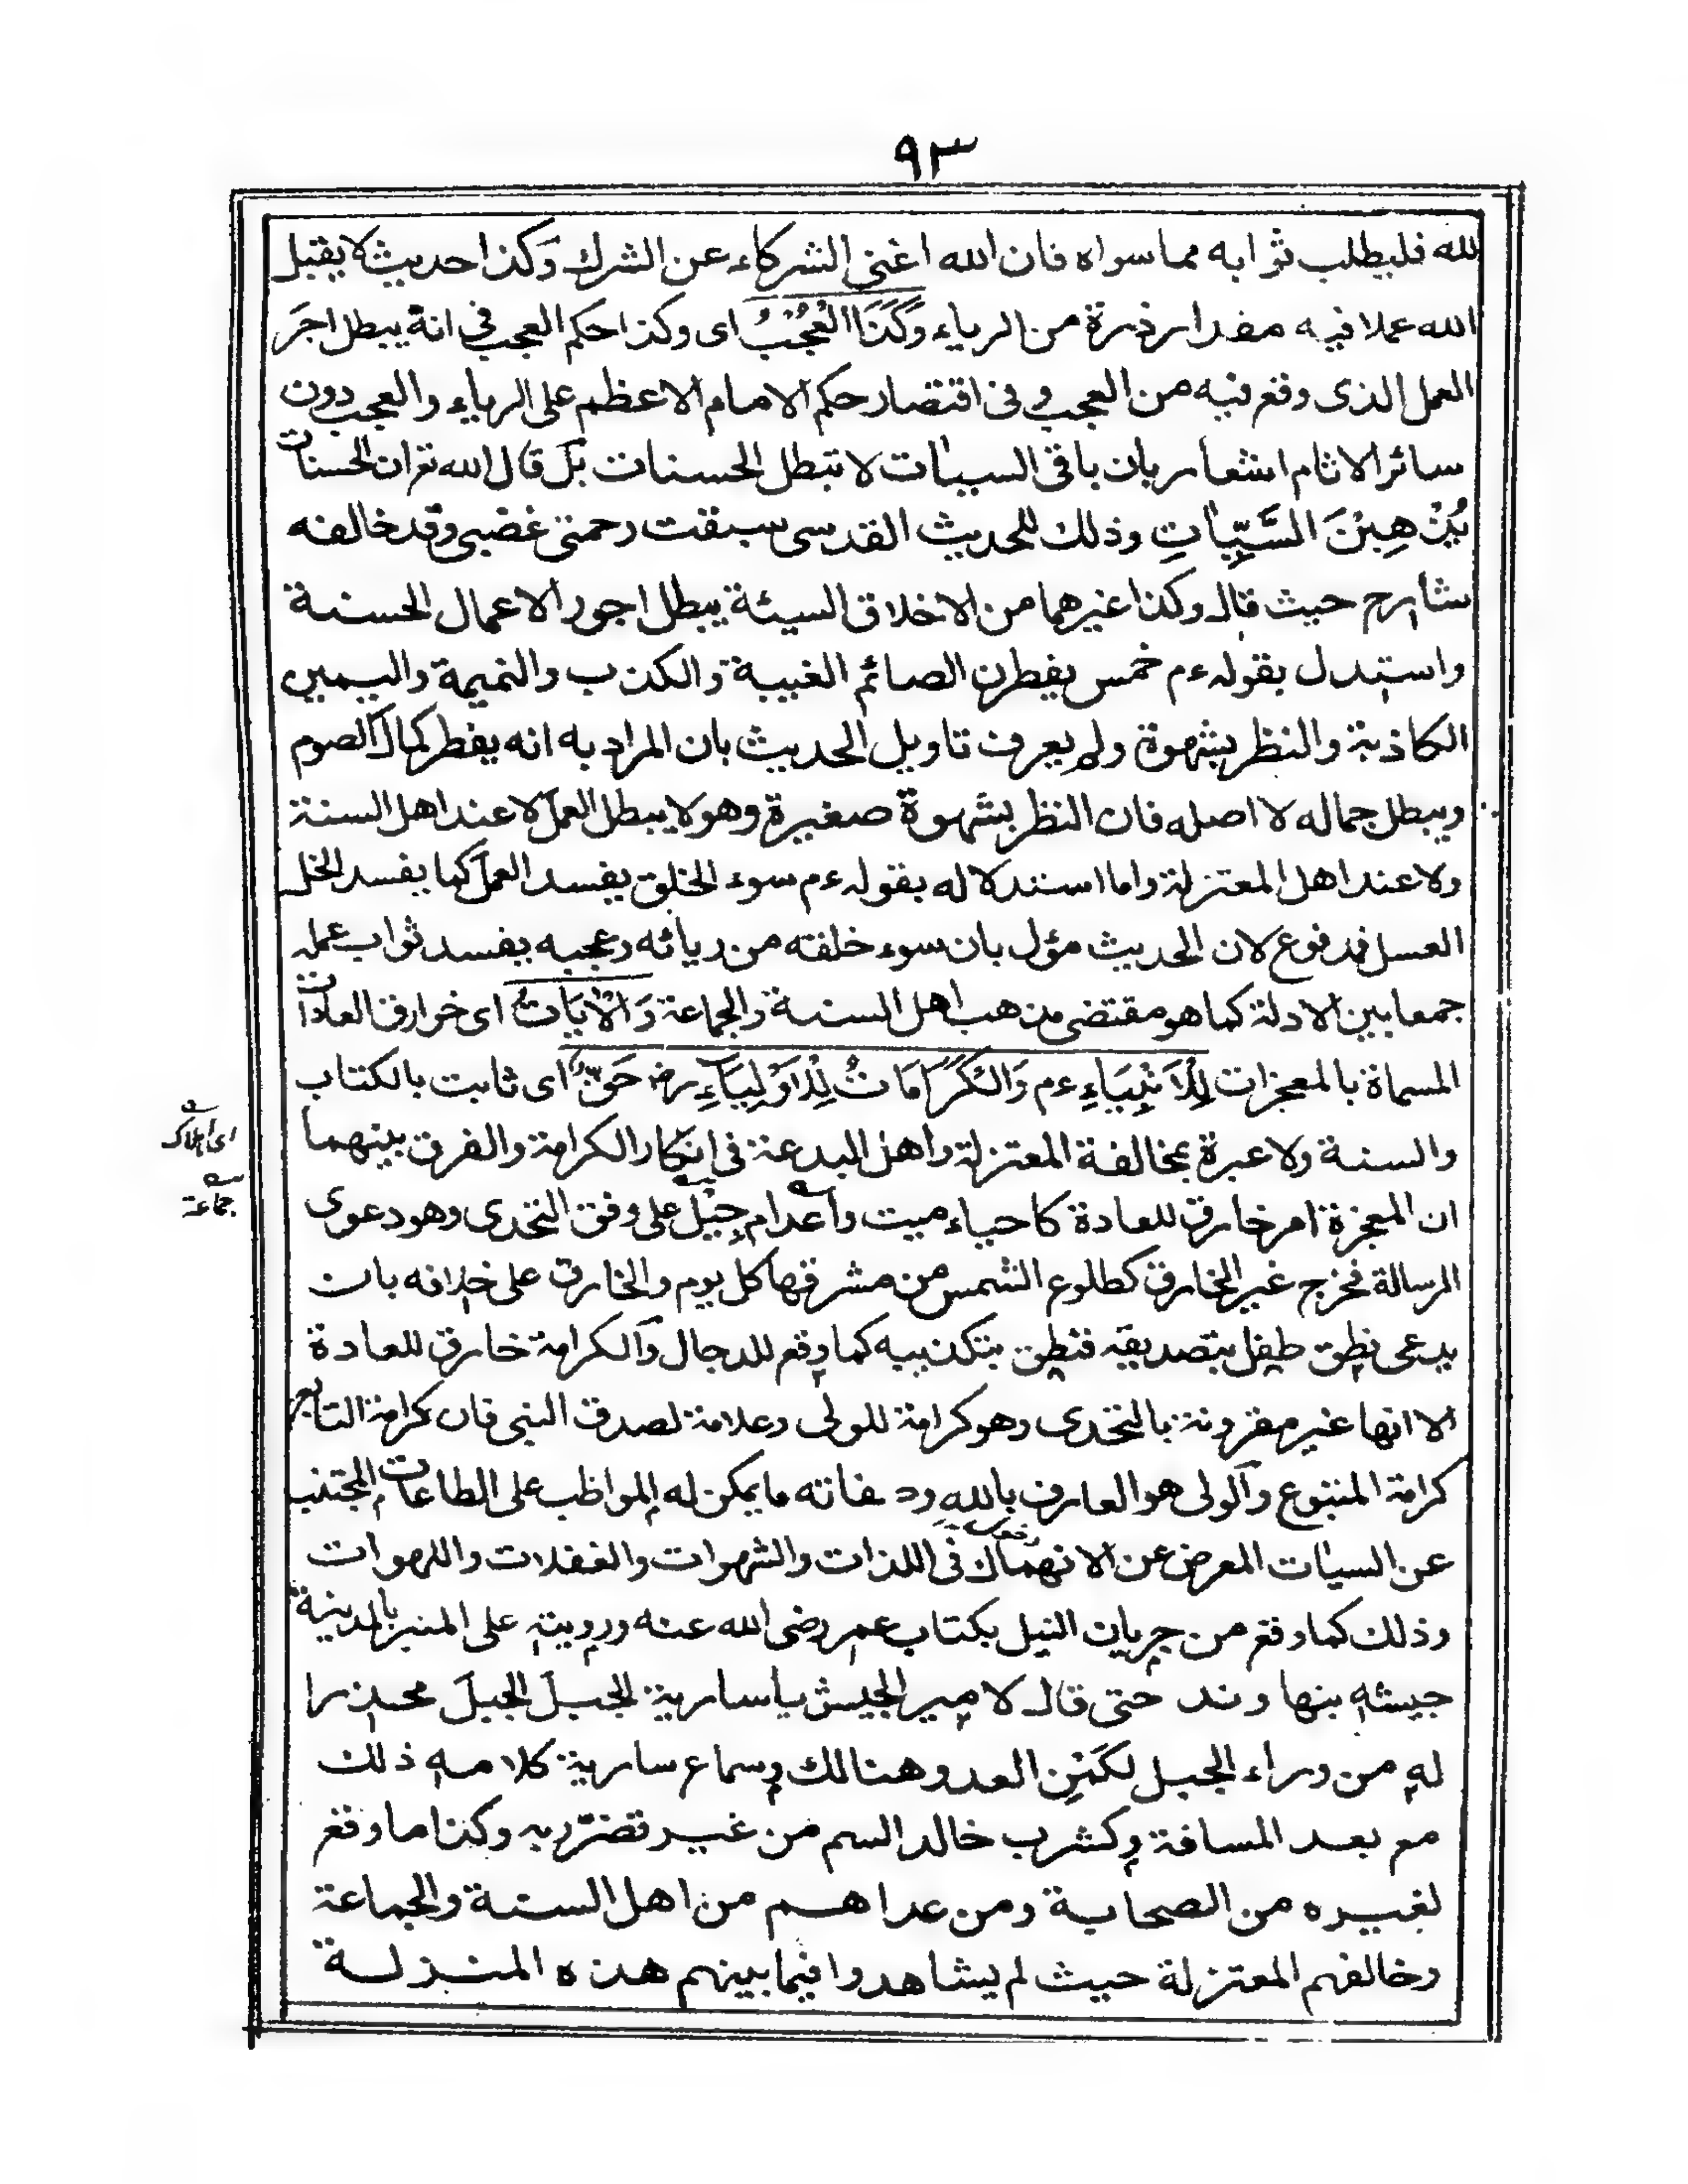 ٩٣
لله فليطلب ثوابه مما سواه فان الله اغنى الشركاء عن الشرك وكذا حديث لا يقبل
الله عملا فيه مقدار ذرة من الرياء وَكَذَا الْعُجْبُ اى وكذا حكم العجب فى انه يبطل اجر
العمل الذى وقع فيه من العجب وفى اقتصار حكم الامام الاعظم على الرياء والعجب دون
سائر الاثام اشعار بان باقى السيئات لا تبطل الحسنات بل قال الله تع ان الحسنات
يُذْهِبْنَ السَّيِّاٰتِ وذلك للحديث القدسى سبقت رحمتى غضبى وقد خالفه
شارح حيث قال وكذا غيرهما من الاخلاق السيئة يبطل اجور الاعمال الحسنة
واستدل بقوله عم خمس يفطرن الصائم الغيبة والكذب والنميمة واليمين
الكاذبة والنظر بشهوة ولم يعرف تاويل الحديث بان المراد به انه يفطر كمال الصوم
ويبطل جماله لا اصله فان النظر بشهوة صغيرة وهو لا يبطل العمل لا عند اهل السنة
ولا عند اهل المعتزلة واما استدلاله بقوله عم سوء الخلق يفسد العمل كما يفسد الخل
العسل فمدفوع لان الحديث مؤل بان سوء خلقته من ريائه وعجبه يفسد ثواب عمله
جمعا بين الادلة كما هو مقتضى مذهب اهل السنة والجماعة وَالْاٰيَاتُ اى خوارق العادات
المسماة بالمعجزات لِلْاَنْبِيَاءِ عم وَالْكَرَامَاتُ لِلْاَوْلِيَاءِ رض حَقٌّ اى ثابت بالكتاب
والسنة ولا عبرة بمخالفة المعتزلة واهل البدعة فى انكار الكرامة والفرق بينهما
اى اهلاك
جماعة
ان المعجزة امر خارق للعادة كاحياء ميت واعدام جبل على وفق التحدى وهو دعوى
الرسالة فخرج غير الخارق كطلوع الشمس من مشرقها كل يوم والخارق على خلافه بان
يدعى نطق طفل بتصديقه فنطق بتكذيبه كما وقع للدجال والكرامة خارق للعادة
الا انها غير مقرونة بالتحدى وهو كرامة للولى وعلامة لصدق النبى فان كرامة التابع
كرامة المتبوع والولى هو العارف بالله وصفاته ما يمكن له المواظب على الطاعات المجتنب
عن السيئات المعرض عن الانهماك فى اللذات والشهوات والغفلات واللهوات
وذلك كما وقع من جريان النيل بكتاب عمر رضى الله عنه ورويته على المنبر بالمدينة
جيشه بنهاوند حتى قال لامير الجيش يا سارية الجبل الجبل محذرا
له من وراء الجبل لكمن العدو هنالك وسماع سارية كلامه ذلك
مع بعد المسافة وكشرب خالد السم من غير تضرر به وكذا ما وقع
لغيره من الصحابة ومن عداهم من اهل السنة والجماعة
وخالفهم المعتزلة حيث لم يشاهدوا فيما بينهم هذه المنزلة